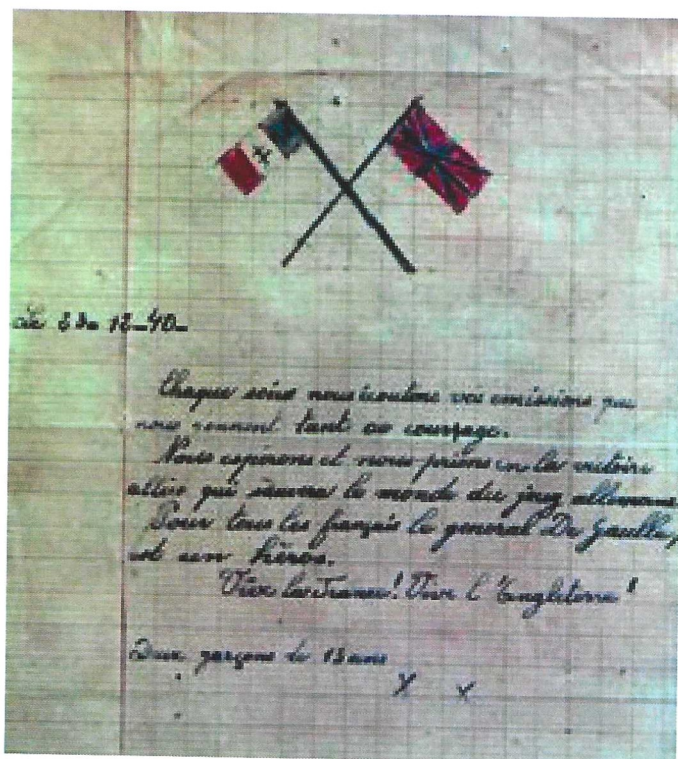 Chaque soir nous écoutons vos emissions qui
nous donnent tant de courage.
Nous espérons et nous prions en la victoire
alliée qui sauvera le monde du joug allemand.
Pour tous les français le general De Gaulle,
est un héros.
Vive la France! Vive l'Engleterre!
Deux garçons de 13 ans
X X